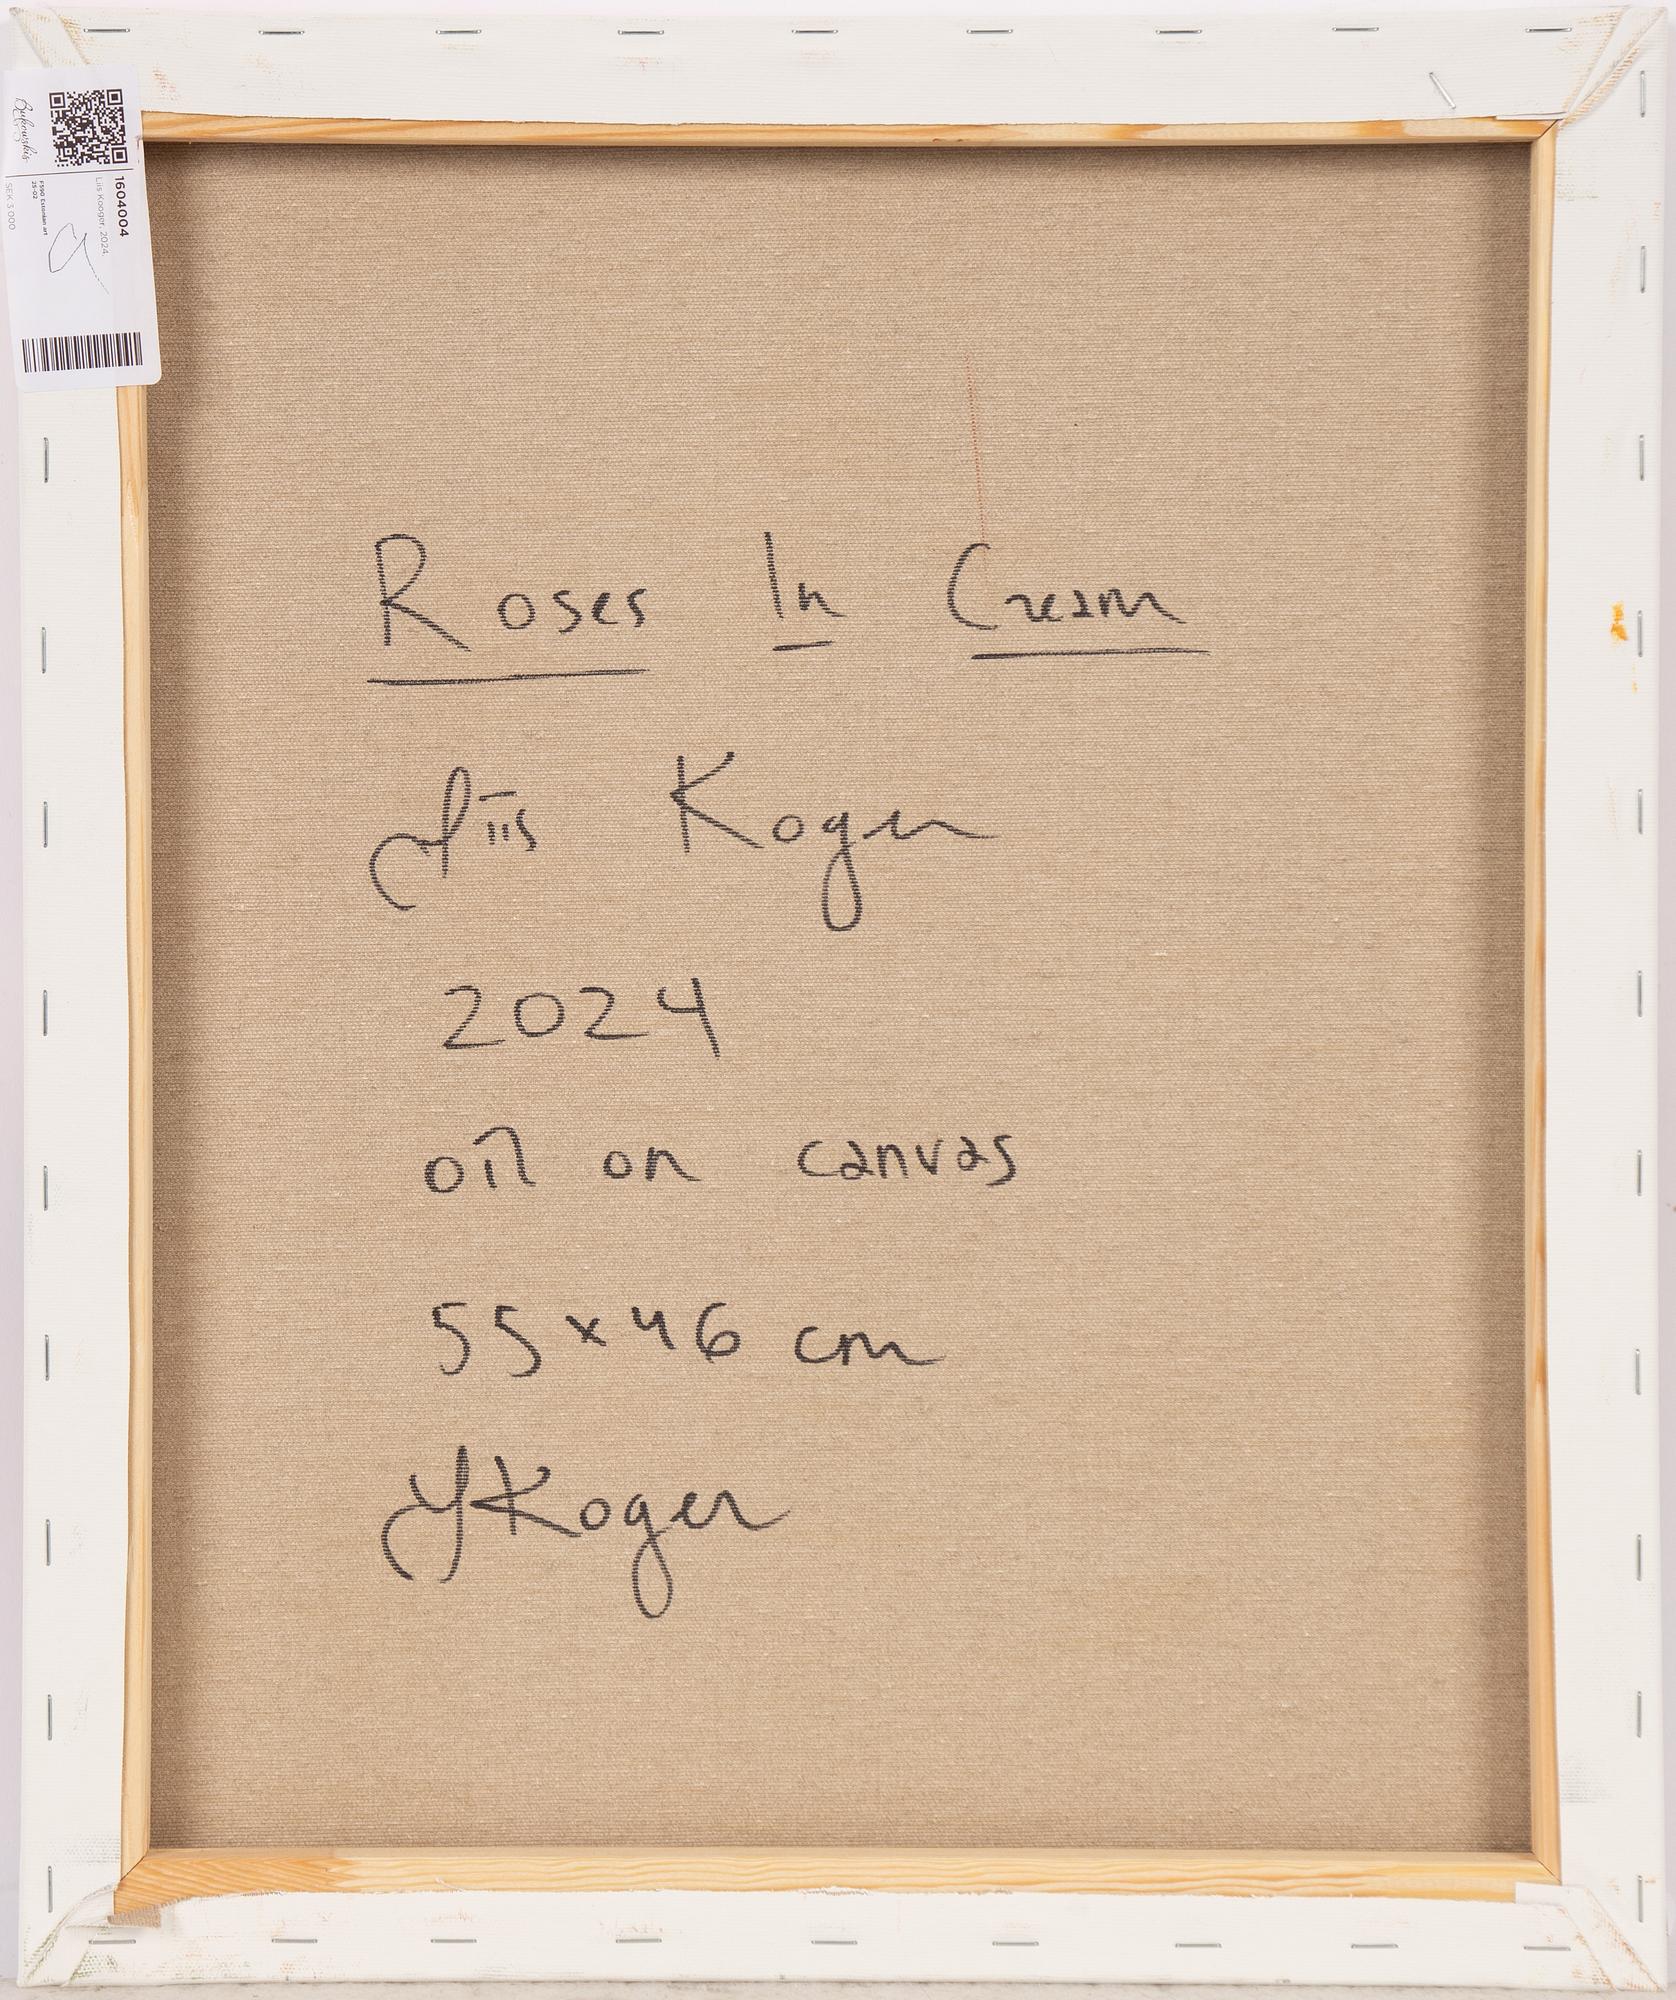 Bukowskis
1604004
Liis Kooger, 2024.
F590 Estonian art
25-02
SEK 3 000
Roses In Cream
Liis Koger
2024
oil on canvas
55x46 cm
LKoger